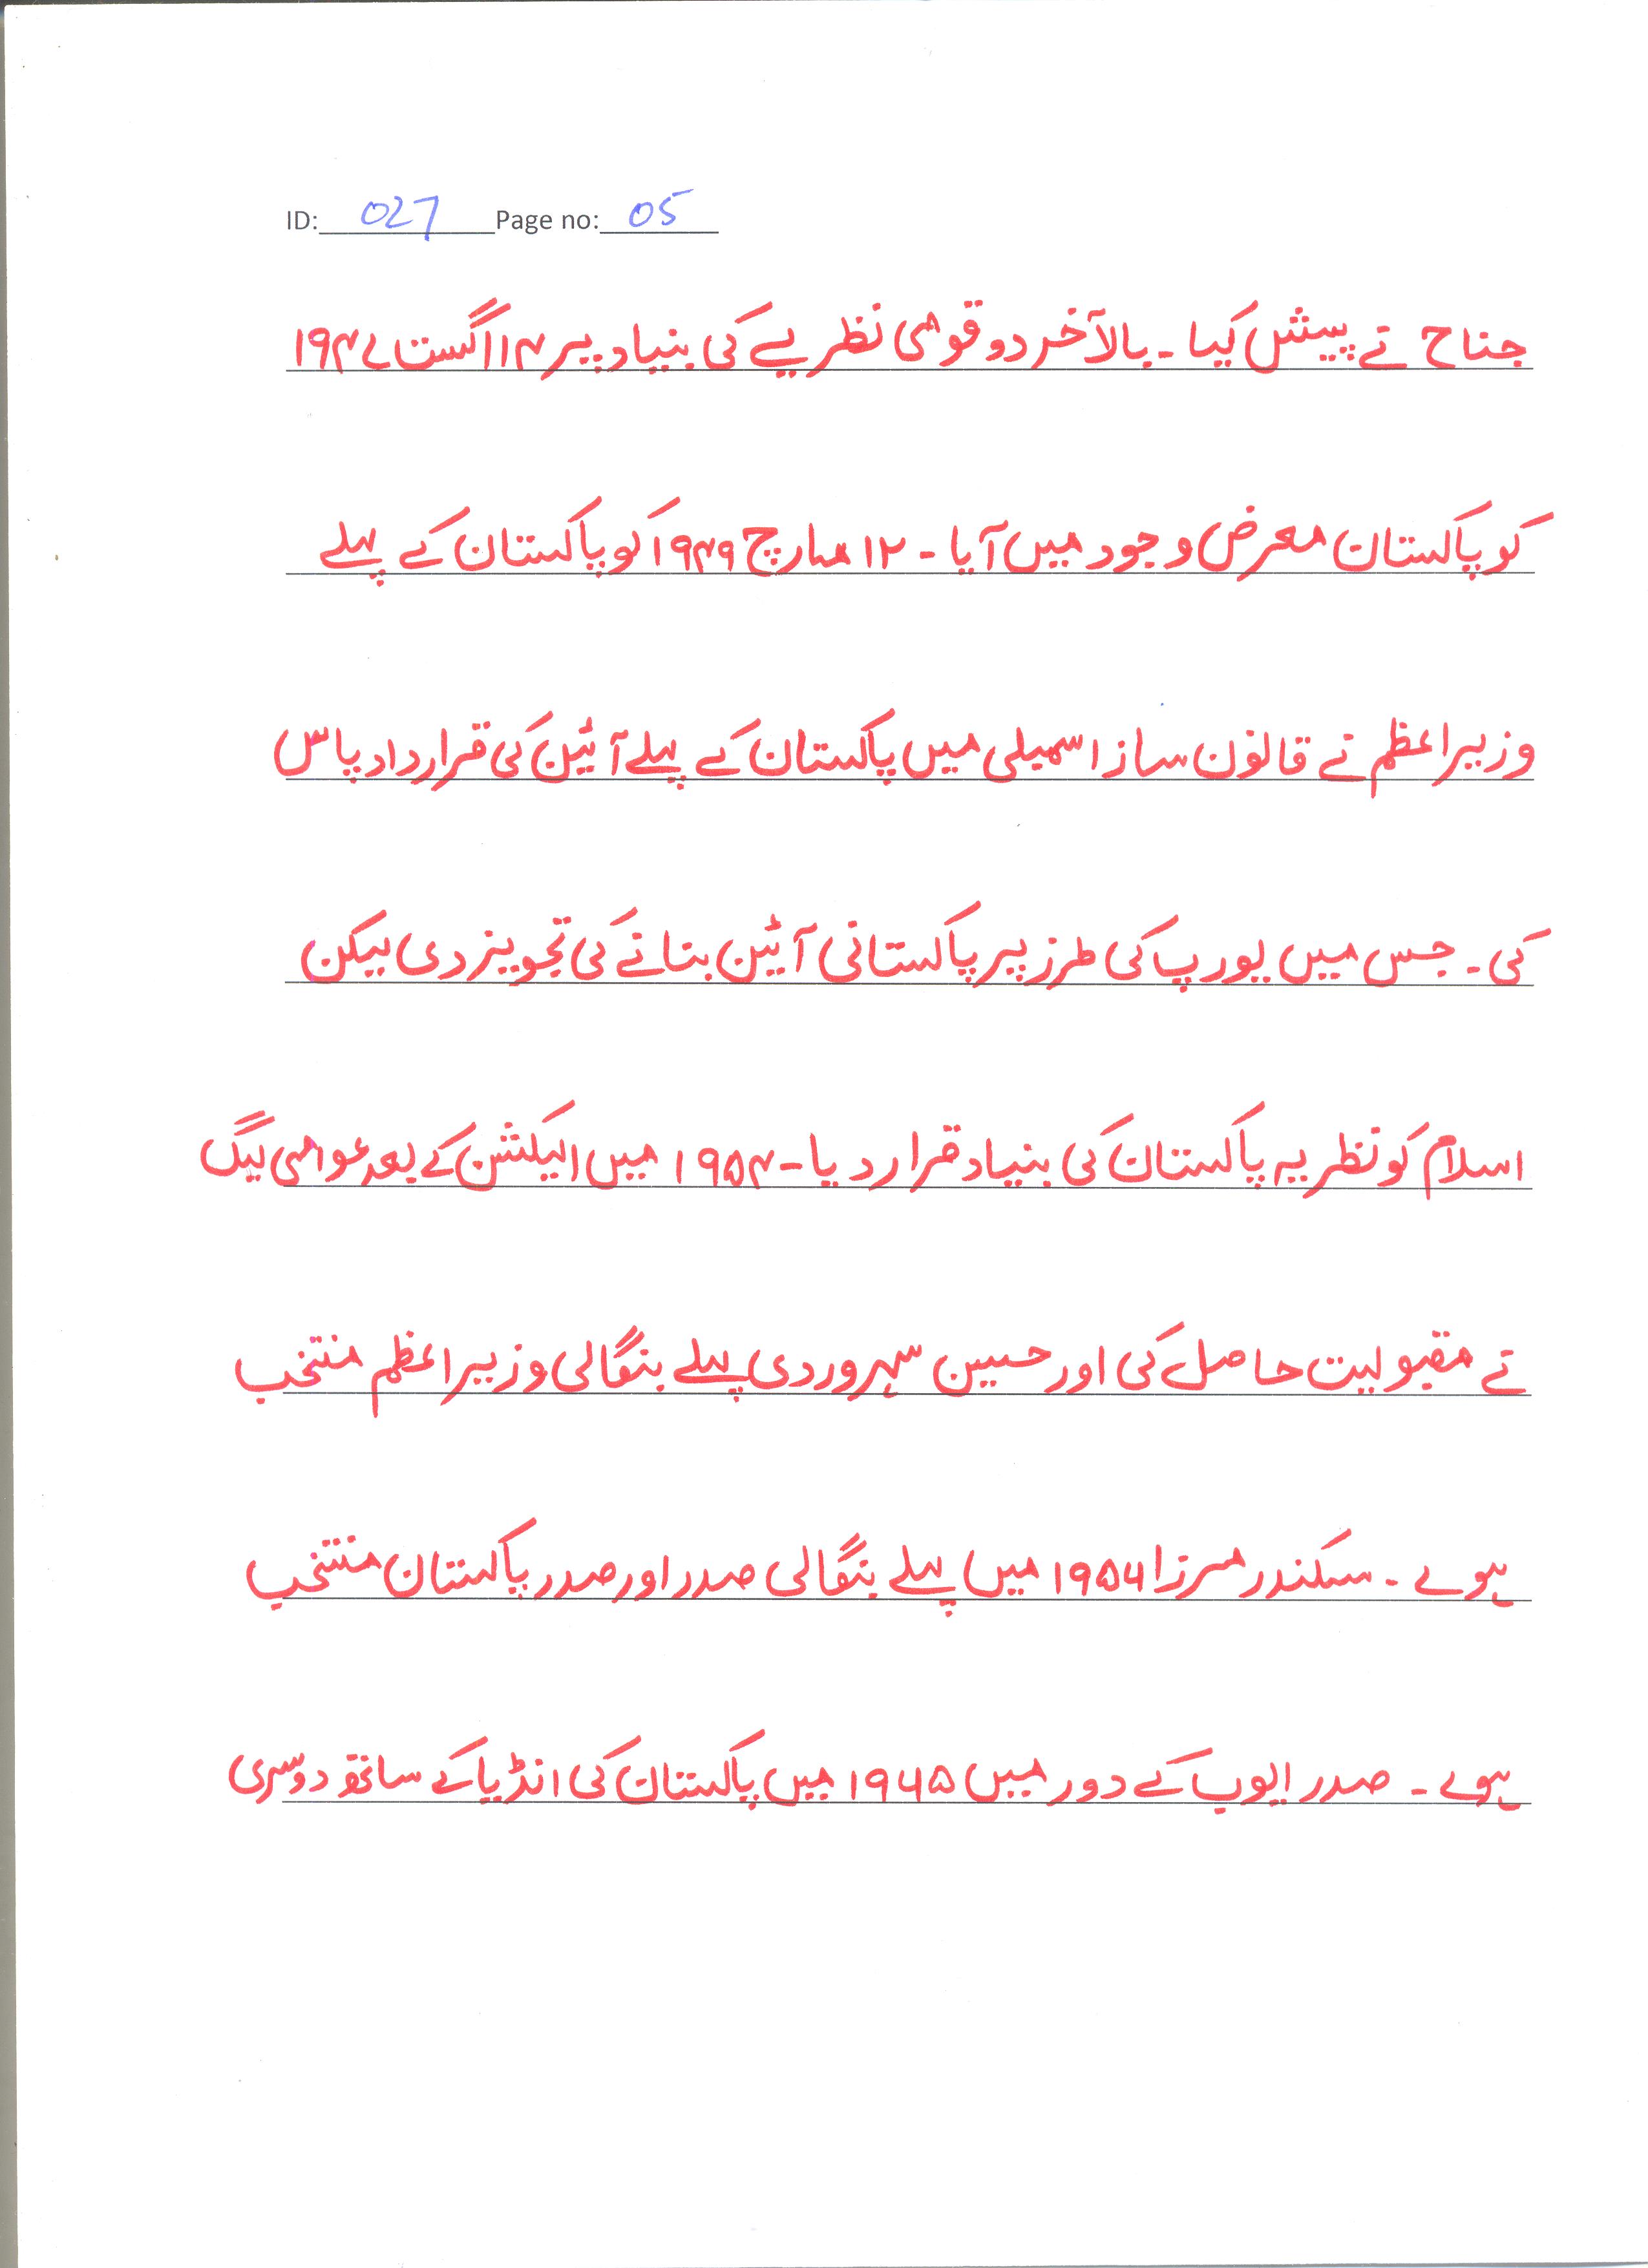 ID: 027 Page no: 05
جناح نے پیش کیا ۔ بالآخر دو قومی نظریے کی بنیاد پر ۱۴ اگست ۱۹۴۷
کو پاکستان معرض وجود میں آیا ۔ ۱۲ مارچ ۱۹۴۹ کو پاکستان کے پہلے
وزیراعظم نے قانون ساز اسمبلی میں پاکستان کے پہلے آئین کی قرارداد پاس
کی ۔ جس میں یورپ کی طرز پر پاکستانی آئین بنانے کی تجویز دی لیکن
اسلام کو نظریہ پاکستان کی بنیاد قرار دیا ۔ ۱۹۵۴ میں الیکشن کے بعد عوامی لیگ
نے مقبولیت حاصل کی اور حسین سہروردی پہلے بنگالی وزیراعظم منتخب
ہوے ۔ سکندر مرزا ۱۹۵۶ میں پہلے بنگالی صدر اور صدر پاکستان منتخب
ہوے ۔ صدر ایوب کے دور میں ۱۹۶۵ میں پاکستان کی انڈیا کے ساتھ دوسری